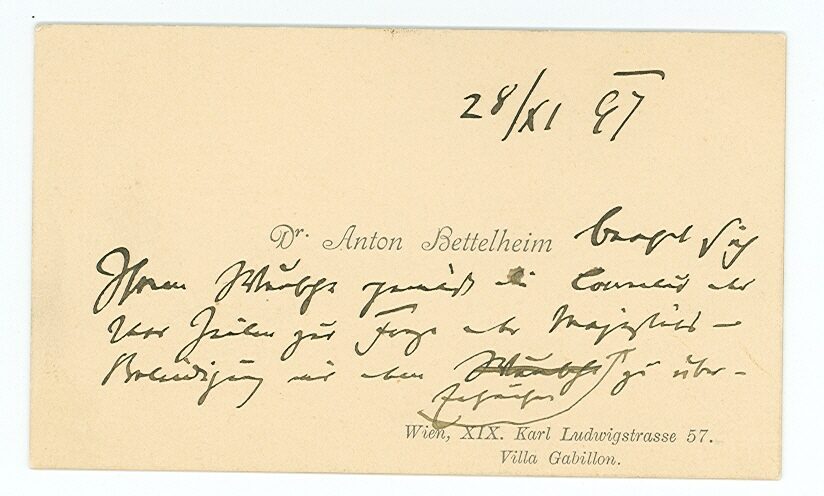 28/XI 97
Dr. Anton Bettelheim beehrt sich
Ihrem Wunsche gemäß die
zur Frage der Majestäts-
Beleidigung mit dem Wunsche zu über-
Wien, XIX. Karl Ludwigstrasse 57.
Villa Gabillon.